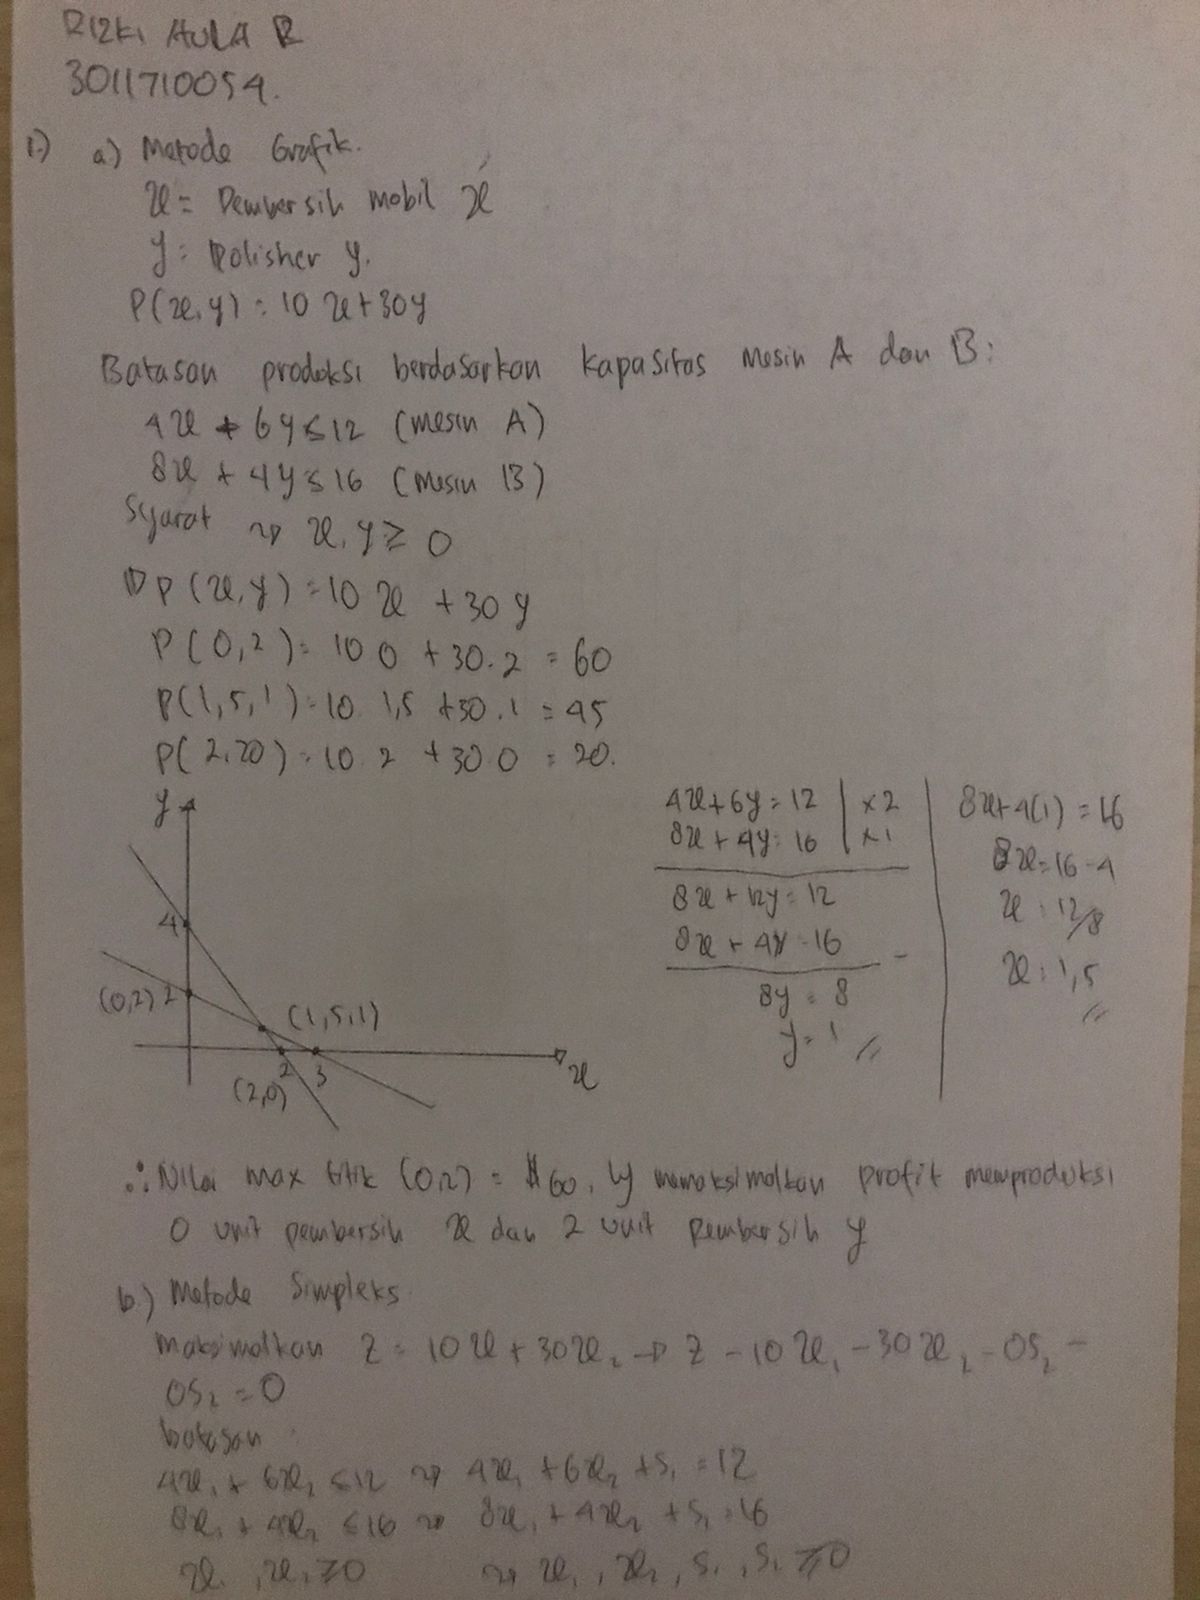 RIZKI AULA R
3011710054.
1.) a) Metode Grafik.
x = Pembersih mobil x
y = Polisher y.
P(x,y) = 10x + 30y
Batasan produksi berdasarkan kapasitas mesin A dan B:
4x + 6y ≤ 12 (mesin A)
8x + 4y ≤ 16 (Mesin B)
Syarat ⇝ x, y ≥ 0
▷ P(x,y) = 10x + 30y
P(0,2) = 10 0 + 30.2 = 60
P(1,5,1) = 10 1,5 + 30.1 = 45
P(2,20) = 10 2 + 30 0 = 20.
y
4
(0,2) 2
(1,5,1)
2 3
(2,0)
x
4x + 6y = 12 | x2
8x + 4y = 16 | x1
8x + 12y = 12
8x + 4y = 16 -
8y = 8
y = 1 //
8x + 4(1) = 16
8x = 16 - 4
x = 12/8
x = 1,5 //
∴ Nilai max titik (0,2) = $60, memaksimalkan profit memproduksi
0 unit pembersih x dan 2 unit Pembersih y
b.) Metode Simpleks
Maksimalkan Z = 10x + 30x₂ → Z - 10x₁ - 30x₂ - 0S₂ -
0S₂ = 0
batasan
4x₁ + 6x₂ ≤ 12 ⇝ 4x₁ + 6x₂ + S₁ = 12
8x₁ + 4x₂ ≤ 16 ⇝ 8x₁ + 4x₂ + S₁ = 16
x₁, x₂ ≥ 0 ⇝ x₁, x₂, S₁, S₁ ≥ 0